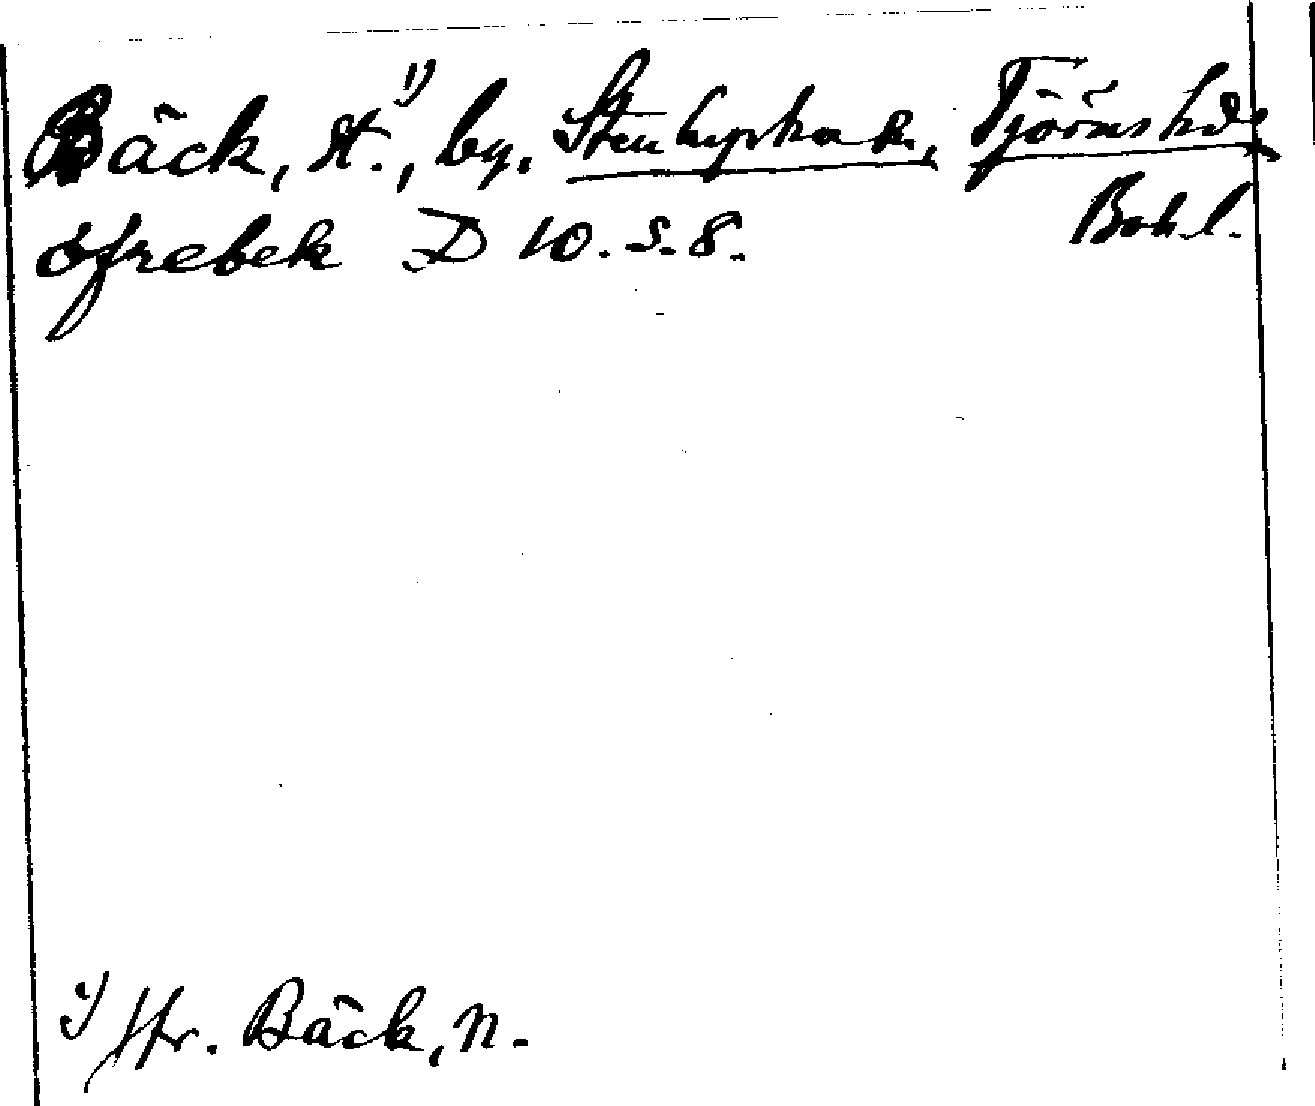 Bäck, St.¹⁾, by. Stenkyrka sn, Tjörns hd
Bohl.
öfrebek D 10. s. 8.
¹⁾ Jfr. Bäck, n.